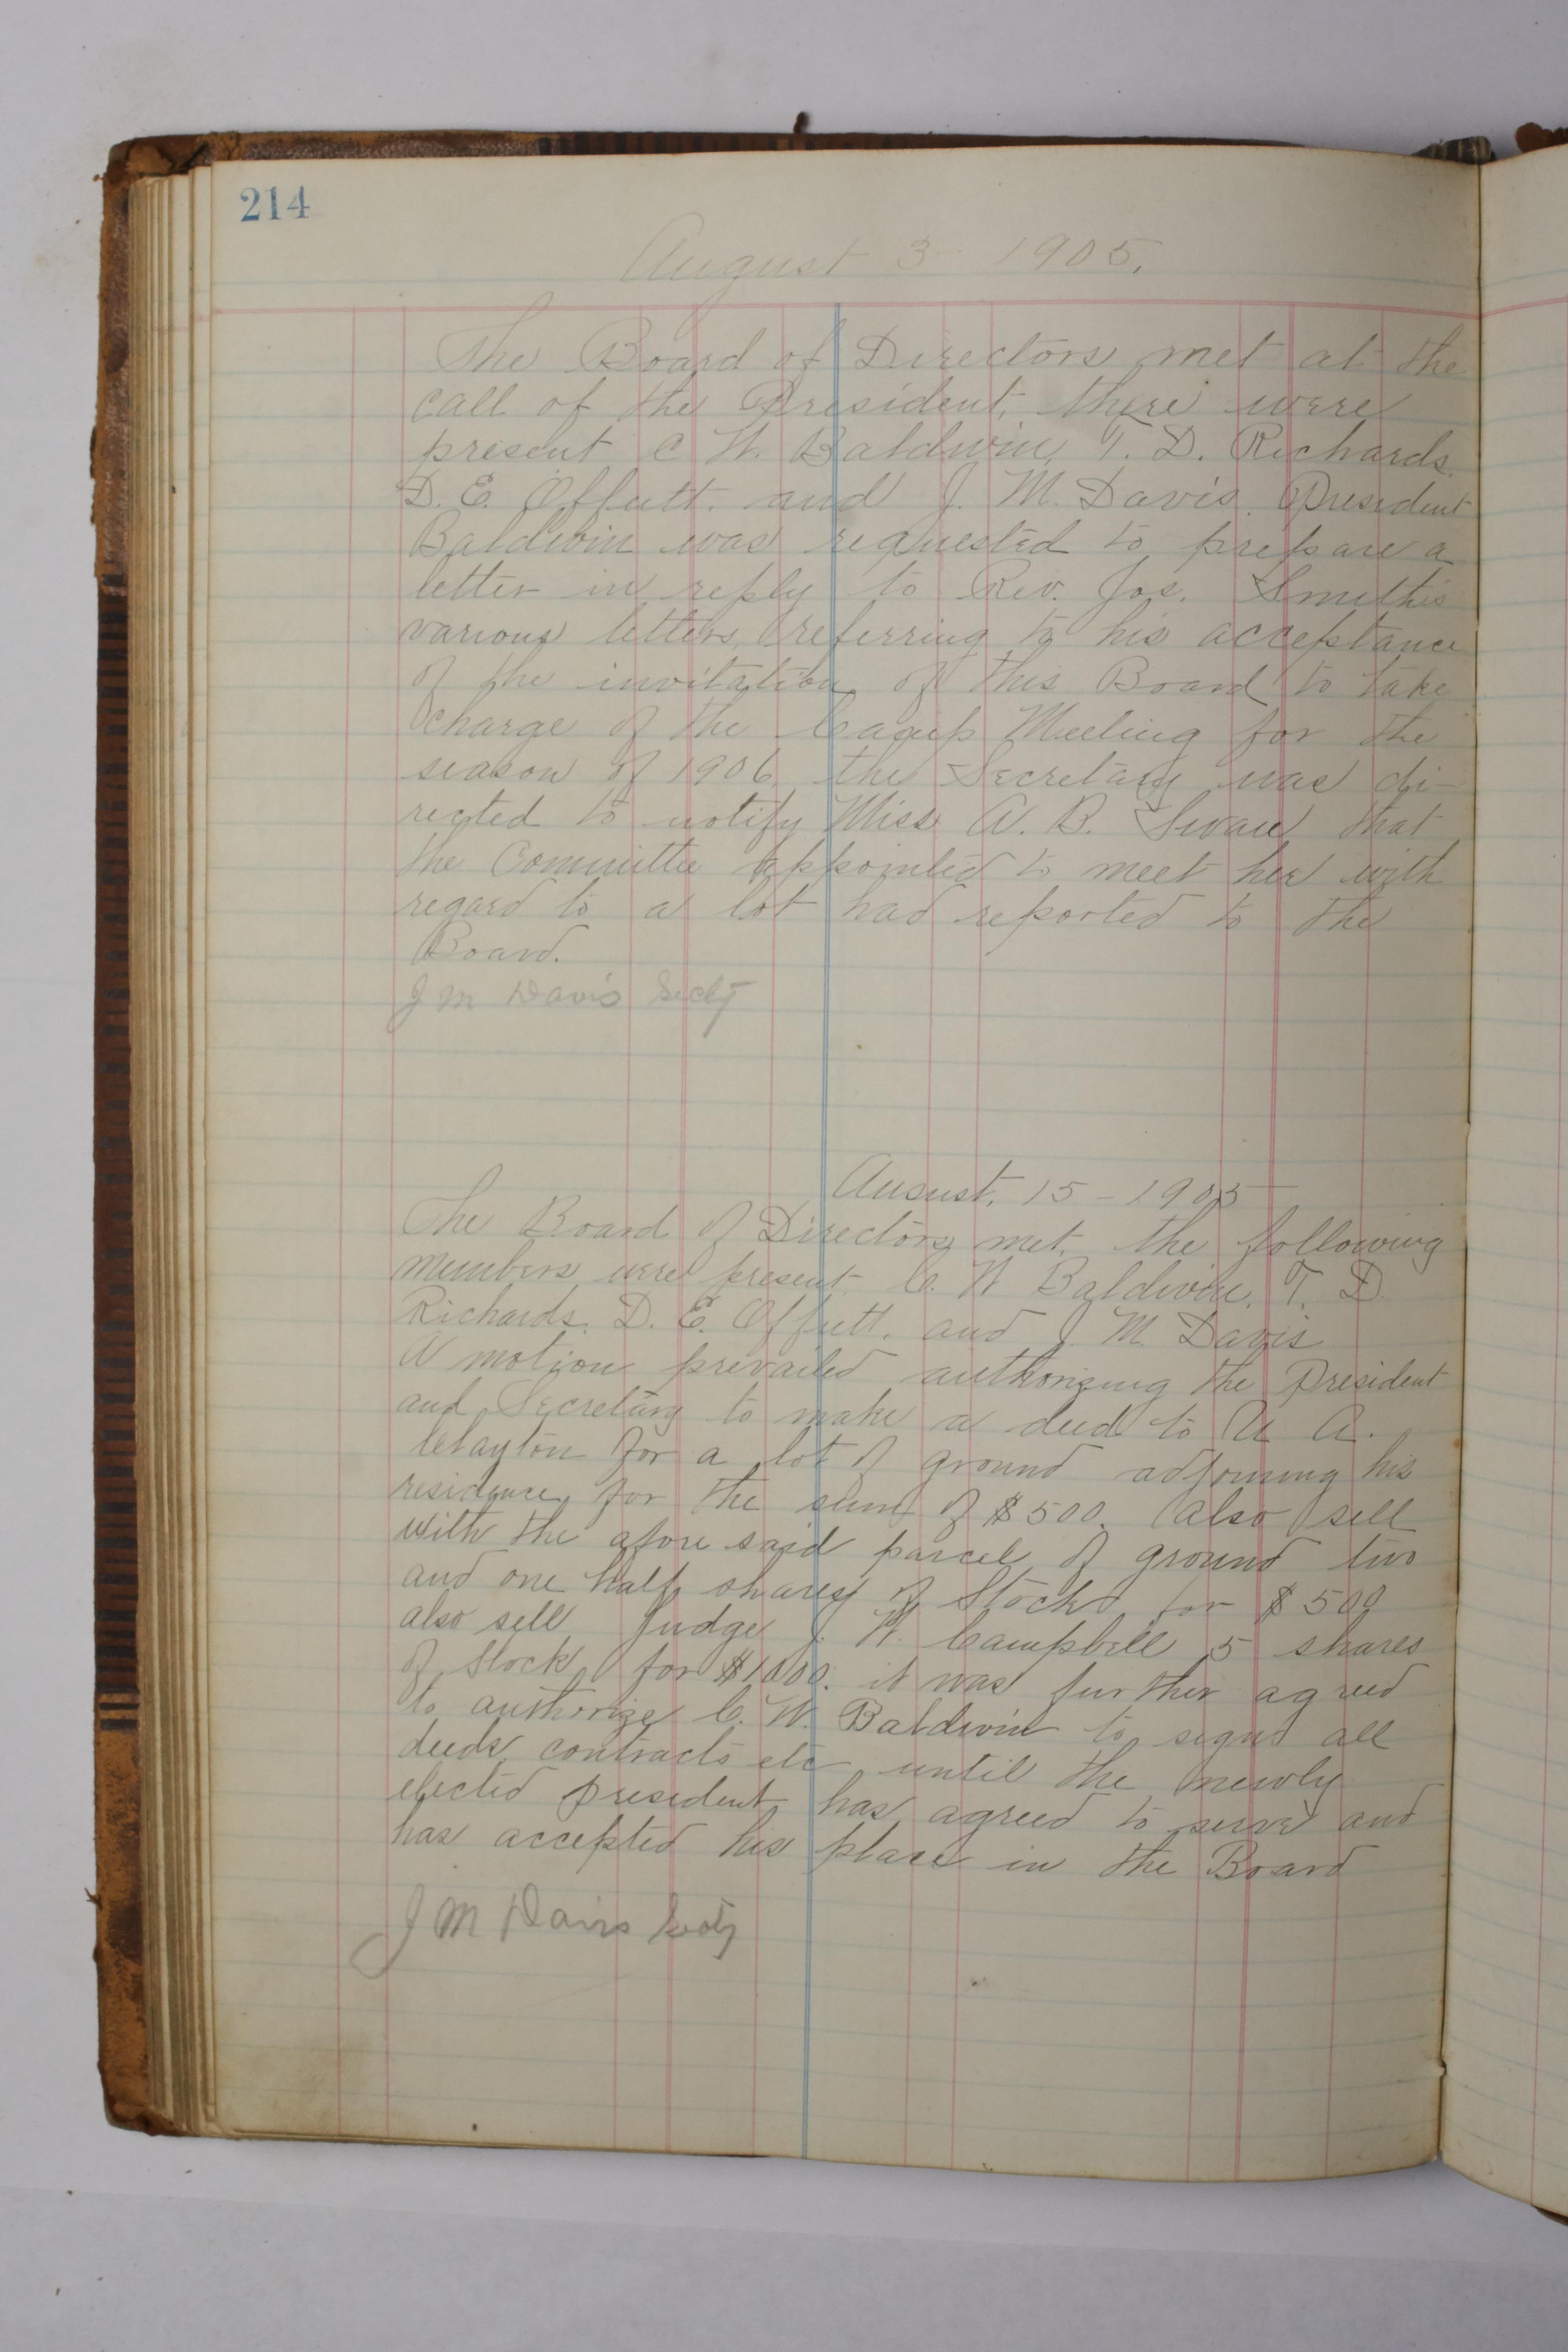 214
August 3 - 1905.
The Board of Directors met at the
call of the President, there were
present C W. Baldwin, T. D. Richards.
D. E. Offutt. and J. M. Davis. President
Baldwin was requested to prepare a
letter in reply to Rev. Jos. Smith's
various letters, referring to his acceptance
of the invitation of this Board to take
charge of the Camp Meeting for the
season of 1906, the Secretary was di-
rected to notify Miss A. B. Swan that
the Committee appointed to meet her with
regard to a lot had reported to the
Board.
J M Davis Secty
August, 15 - 1905
The Board of Directors met, the following
members were present. C. W Baldwin, T. D
Richards. D. E. Offutt. and J. M. Davis
A motion prevailed authorizing the President
and Secretary to make a deed to A.
Clayton for a lot of ground adjoining his
residence, for the sum of $500. Also sell
with the afore said parcel of ground two
and one half shares of Stock for $500
also sell Judge J. W. Campbell 5 shares
of stock for $1000. it was further agreed
to authorize C. W. Baldwin to sign all
deeds, contracts etc until the newly
elected president has agreed to serve and
has accepted his place in the Board
J M Davis Secty